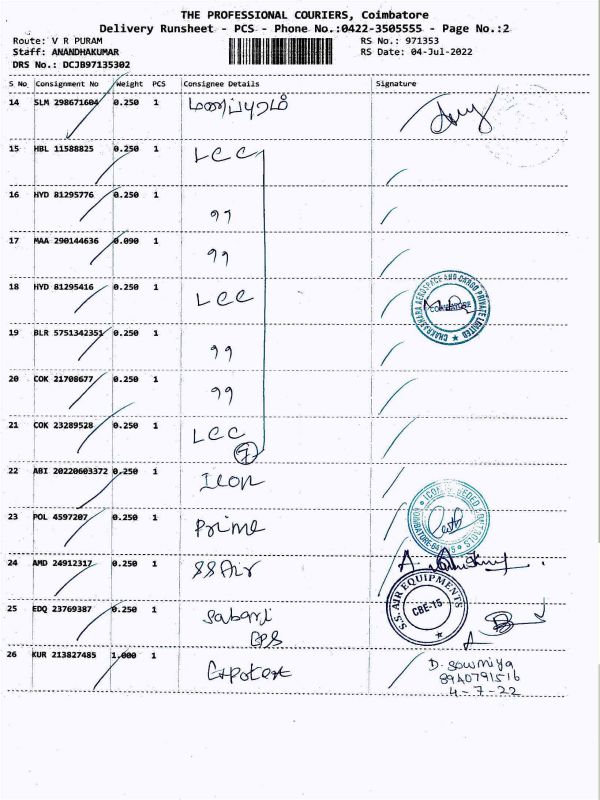 THE PROFESSIONAL COURIERS, Coimbatore
Delivery Runsheet - PCS - Phone No.:0422-3505555 - Page No.:2
Route: V R PURAM RS No.: 971353
Staff: ANANDHAKUMAR RS Date: 04-Jul-2022
DRS No.: DCJB97135302
S No Consignment No Weight PCS Consignee Details Signature
14 SLM 298671604 0.250 1 மணப்புரம்
15 HBL 11588825 0.250 1 LCC
16 HYD 81295776 0.250 1 ,,
17 MAA 290144636 0.090 1 ,,
18 HYD 81295416 0.250 1 LCC
CHAKRADHARA AEROSPACE AND CARGO PRIVATE LIMITED
COIMBATORE
19 BLR 5751342351 0.250 1 ,,
20 COK 21708677 0.250 1 ,,
21 COK 23289528 0.250 1 LCC
7
22 ABI 20220603372 0.250 1 Icon
23 POL 4597207 0.250 1 Prime
24 AMD 24912317 0.250 1 SSAir
S.S. AIR EQUIPMENTS
CBE-15
25 EDQ 23769387 0.250 1 Sabari
EPS
26 KUR 213827485 1.000 1
D. Sowmiya
8940791516
4-7-22